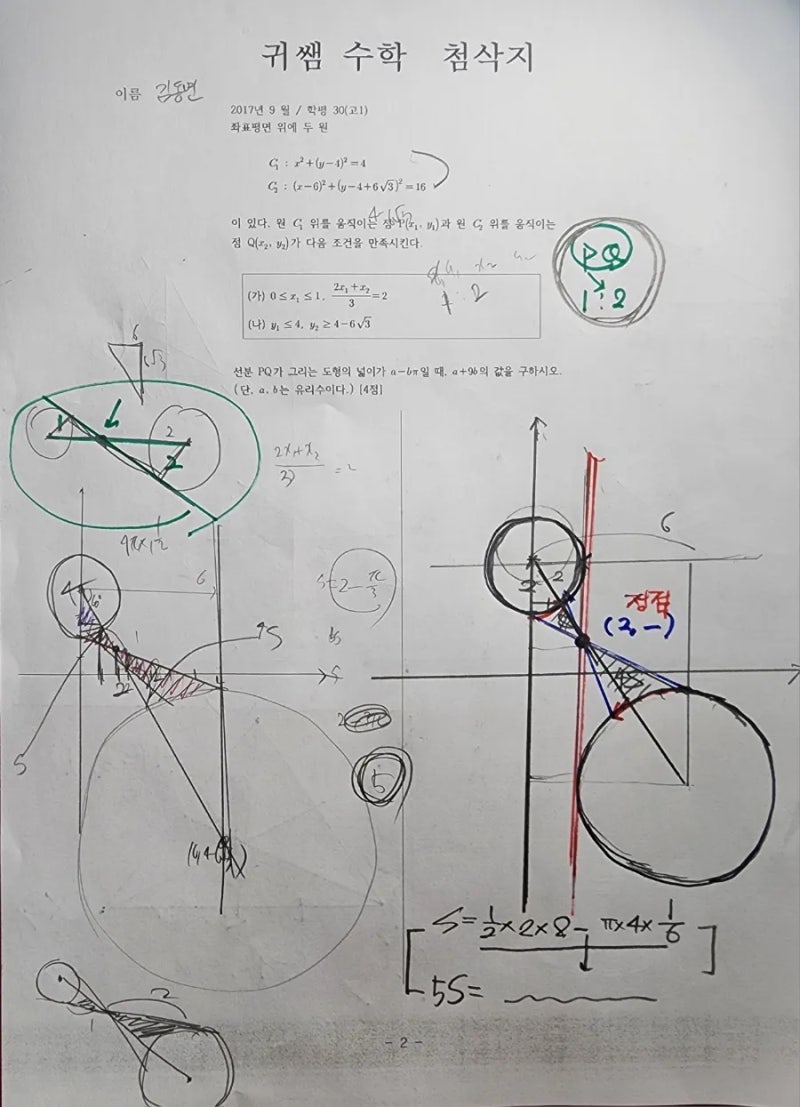 귀쌤 수학 첨삭지
이름 김동면
2017년 9 월 / 학평 30(고1)
좌표평면 위에 두 원
C₁ : x²+(y−4)²=4
C₂ : (x−6)²+(y−4+6√3)²=16
이 있다. 원 C₁ 위를 움직이는 점 P(x₁, y₁)과 원 C₂ 위를 움직이는
점 Q(x₂, y₂)가 다음 조건을 만족시킨다.
PQ
1 : 2
(가) 0≤x₁≤1, (2x₁+x₂)/3=2
1 : 2
(나) y₁≤4, y₂≥4−6√3
선분 PQ가 그리는 도형의 넓이가 a−bπ일 때, a+9b의 값을 구하시오.
(단, a, b는 유리수이다.) [4점]
6
1
2
2
(2x₁+x₂)/3 = 2
6
6
S=2−π/3
접점
(2, −)
2
2
4S
4S
1
S
5
S=1/2×2×8− π×4×1/6
5S=
1
2
- 2 -